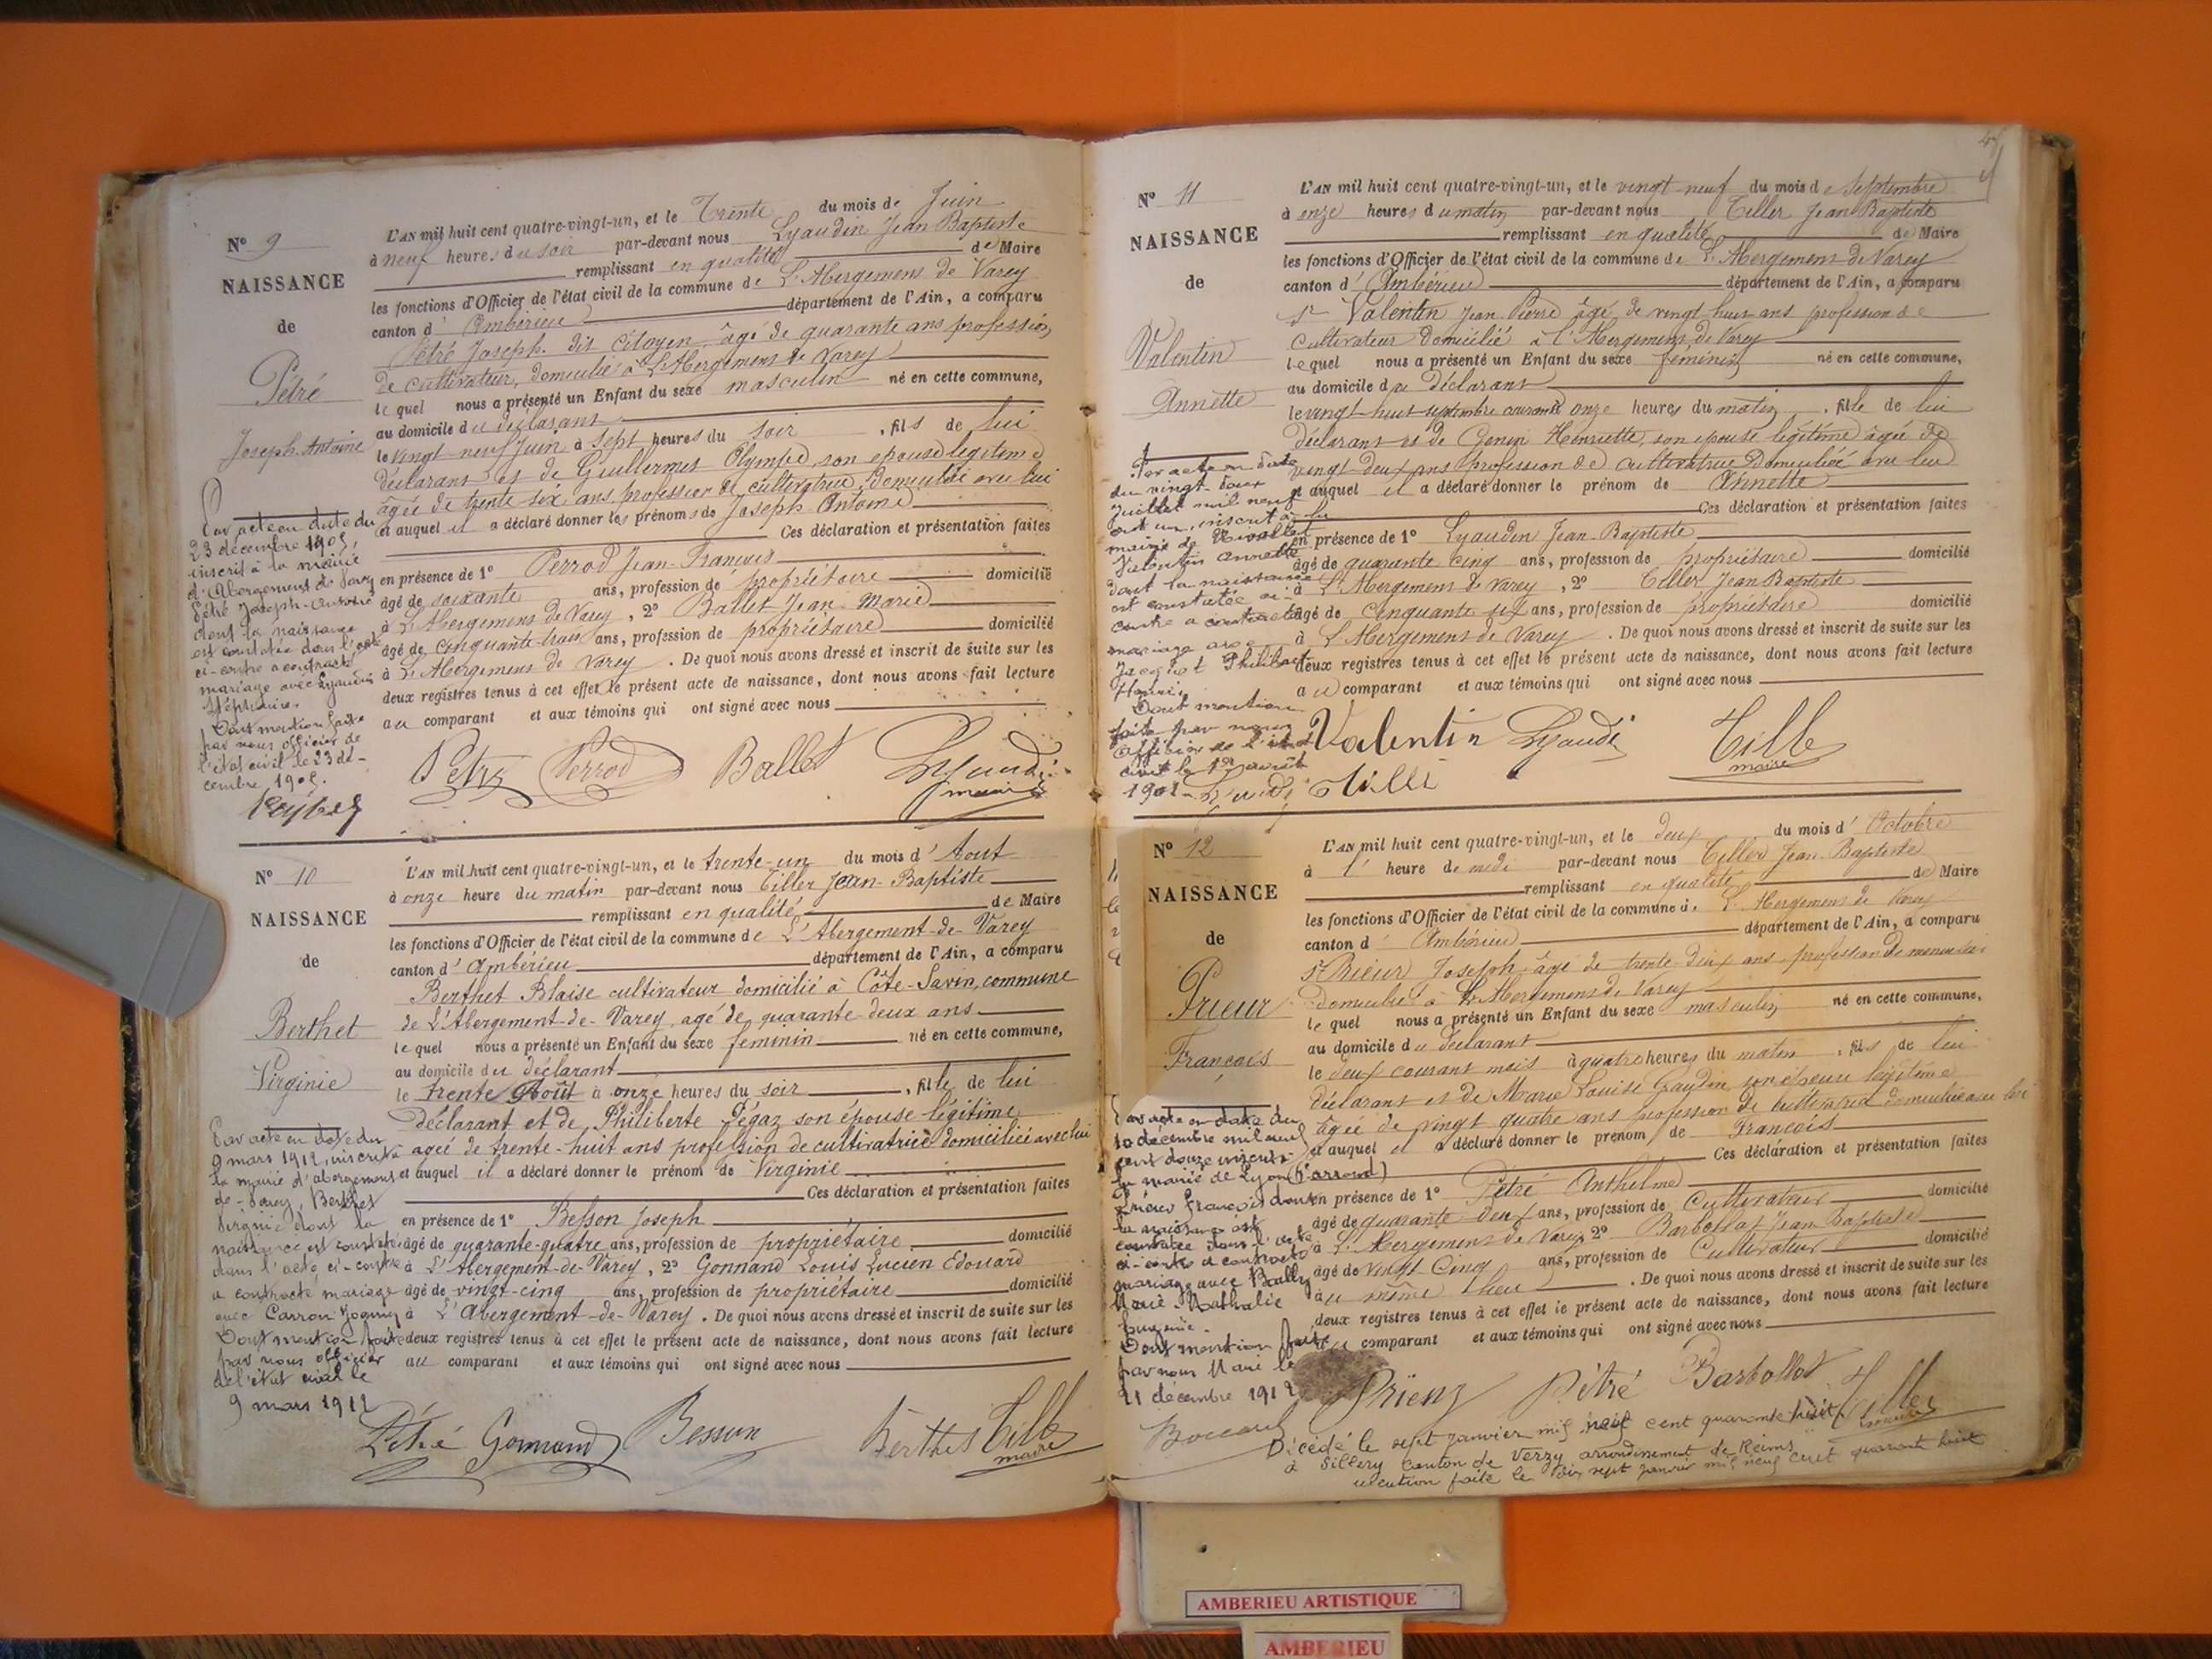 Nº 9
NAISSANCE
de
Pétré
Joseph Antoine
L'AN mil huit cent quatre-vingt-un, et le Trente du mois de Juin
à neuf heures du soir par-devant nous Lyaudin Jean Baptiste
remplissant en qualité de Maire
les fonctions d'Officier de l'état civil de la commune de L'Abergement de Varey
canton d'Ambérieu département de l'Ain, a comparu
Pétré Joseph dit Citoyen âgé de quarante ans profession
de cultivateur, domicilié à L'Abergement de Varey
lequel nous a présenté un Enfant du sexe masculin né en cette commune,
au domicile du déclarant
le vingt-neuf Juin à sept heures du soir, fils de lui
déclarant et de Guillermet Olympe son épouse légitime
âgée de trente six ans profession de cultivatrice, domiciliée avec lui
et auquel il a déclaré donner les prénoms de Joseph Antoine
Ces déclaration et présentation faites
en présence de 1º Perrod Jean-François
âgé de soixante ans, profession de propriétaire domicilié
à L'Abergement de Varey, 2º Ballet Jean Marie
âgé de cinquante trois ans, profession de propriétaire domicilié
à L'Abergement de Varey. De quoi nous avons dressé et inscrit de suite sur les
deux registres tenus à cet effet le présent acte de naissance, dont nous avons fait lecture
au comparant et aux témoins qui ont signé avec nous
Par acte en date du
23 décembre 1905,
inscrit à la mairie
d'Abergement de Varey
Pétré Joseph-Antoine
dont la naissance
est constatée dans l'acte
ci-contre a contracté
mariage avec Lyaudin
Stéphanie.
Dont mention faite
par nous officier de
l'état civil le 23 dé-
cembre 1905.
Pétré Perrod Ballet Lyaudin
maire
Nº 10
NAISSANCE
de
Berthet
Virginie
L'AN mil huit cent quatre-vingt-un, et le trente-un du mois d'Aout
à onze heure du matin par-devant nous Tiller Jean-Baptiste
remplissant en qualité de Maire
les fonctions d'Officier de l'état civil de la commune de L'Abergement-de-Varey
canton d'Ambérieu département de l'Ain, a comparu
Berthet Blaise cultivateur domicilié à Côte-Savin, commune
de L'Abergement-de-Varey, agé de quarante-deux ans
lequel nous a présenté un Enfant du sexe feminin né en cette commune,
au domicile du déclarant
le trente Août à onze heures du soir, fille de lui
déclarant et de Philiberte Pégaz son épouse légitime
agée de trente-huit ans profession de cultivatrice domiciliée avec lui
et auquel il a déclaré donner le prénom de Virginie
Ces déclaration et présentation faites
en présence de 1º Besson Joseph
âgé de quarante-quatre ans, profession de propriétaire domicilié
à L'Abergement-de-Varey, 2º Gonnand Louis Lucien Edouard
âgé de vingt-cinq ans, profession de propriétaire domicilié
à L'Abergement-de-Varey. De quoi nous avons dressé et inscrit de suite sur les
deux registres tenus à cet effet le présent acte de naissance, dont nous avons fait lecture
au comparant et aux témoins qui ont signé avec nous
Par acte en date du
9 mars 1912, inscrit à
la mairie d'abergement
de-Varey, Berthet
Virginie dont la
naissance est constatée
dans l'acte ci-contre
a contracté mariage
avec Carron
Dont mention faite
par nous officier
de l'état civil le
9 mars 1912
Pétré Gonnand Besson Berthet Tiller
maire
Nº 11
NAISSANCE
de
Valentin
Annette
L'AN mil huit cent quatre-vingt-un, et le vingt-neuf du mois de Septembre
à onze heures du matin par-devant nous Tiller Jean Baptiste
remplissant en qualité de Maire
les fonctions d'Officier de l'état civil de la commune de L'Abergement de Varey
canton d'Ambérieu département de l'Ain, a comparu
Sr Valentin Jean Pierre âgé de vingt-huit ans profession de
cultivateur domicilié à L'Abergement de Varey
lequel nous a présenté un Enfant du sexe féminin né en cette commune,
au domicile du déclarant
le vingt-huit septembre courant à onze heures du matin, fille de lui
déclarant et de Genin Henriette, son épouse légitime âgée de
vingt-deux ans profession de cultivatrice Domiciliée avec lui
et auquel il a déclaré donner le prénom de Annette
Ces déclaration et présentation faites
en présence de 1º Lyaudin Jean-Baptiste
âgé de quarante cinq ans, profession de propriétaire domicilié
à L'Abergement de Varey, 2º Tiller Jean Baptiste
âgé de cinquante six ans, profession de propriétaire domicilié
à L'Abergement de Varey. De quoi nous avons dressé et inscrit de suite sur les
deux registres tenus à cet effet le présent acte de naissance, dont nous avons fait lecture
au comparant et aux témoins qui ont signé avec nous
Par acte en date
du vingt-deux
juillet mil neuf
cent un, inscrit à la
mairie de
Valentin Annette
dont la naissance
est constatée ci-
contre a contracté
mariage avec
Jacquet Philibert
Henri.
Dont mention
faite par nous
officier de l'état
civil le 1er août
1901
Valentin Lyaudin Tiller
maire
Nº 12
NAISSANCE
de
Prieur
François
L'AN mil huit cent quatre-vingt-un, et le deux du mois d'Octobre
à l' heure de midi par-devant nous Tiller Jean-Baptiste
remplissant en qualité de Maire
les fonctions d'Officier de l'état civil de la commune de L'Abergement de Varey
canton d'Ambérieu département de l'Ain, a comparu
Sr Prieur Joseph âgé de trente-deux ans profession de menuisier
domicilié à L'Abergement de Varey
lequel nous a présenté un Enfant du sexe masculin né en cette commune,
au domicile du déclarant
le deux courant mois à quatre heures du matin, fils de lui
déclarant et de Marie Louise Gaudin son épouse légitime
âgée de vingt quatre ans profession de cultivatrice domiciliée avec lui
et auquel il a déclaré donner le prénom de François
Ces déclaration et présentation faites
en présence de 1º Pétré Anthelme
âgé de quarante deux ans, profession de Cultivateur domicilié
à L'Abergement de Varey, 2º Barbollat Jean Baptiste
âgé de vingt-cinq ans, profession de Cultivateur domicilié
au même lieu. De quoi nous avons dressé et inscrit de suite sur les
deux registres tenus à cet effet le présent acte de naissance, dont nous avons fait lecture
au comparant et aux témoins qui ont signé avec nous
Par acte en date du
10 décembre mil neuf
cent douze inscrit à
la mairie de Lyon
Prieur François dont
la naissance est
constatée dans l'acte
ci-contre a contracté
mariage avec Bailly
Marie-Nathalie
Eugénie.
Dont mention faite
par nous Maire le
21 décembre 1912
Prieur Pétré Barbollat Tiller
Décédé le sept janvier mil neuf cent quarante huit
à Sillery canton de Verzy arrondissement de Reims
mention faite le dix sept janvier mil neuf cent quarante huit
AMBERIEU ARTISTIQUE
AMBERIEU